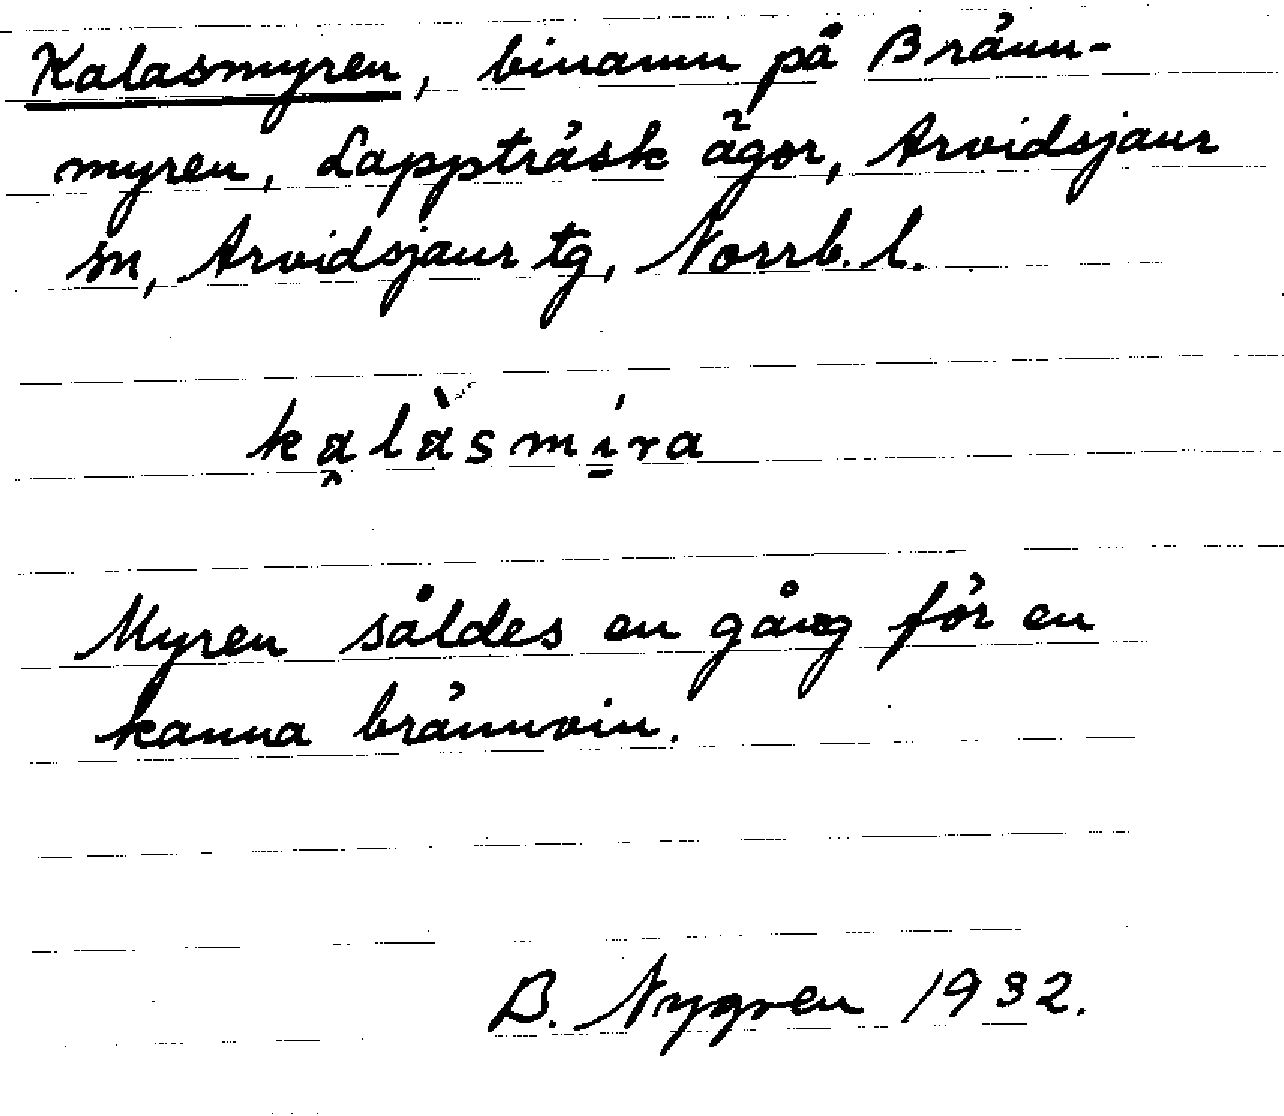 Kalasmyren, binamn på Bränn-
myren, Lappträsk ägor, Arvidsjaur
sn, Arvidsjaur tg, Norrb. l.
kalàsmíra
Myren såldes en gång för en
kanna brännvin.
B. Nygren 1932.